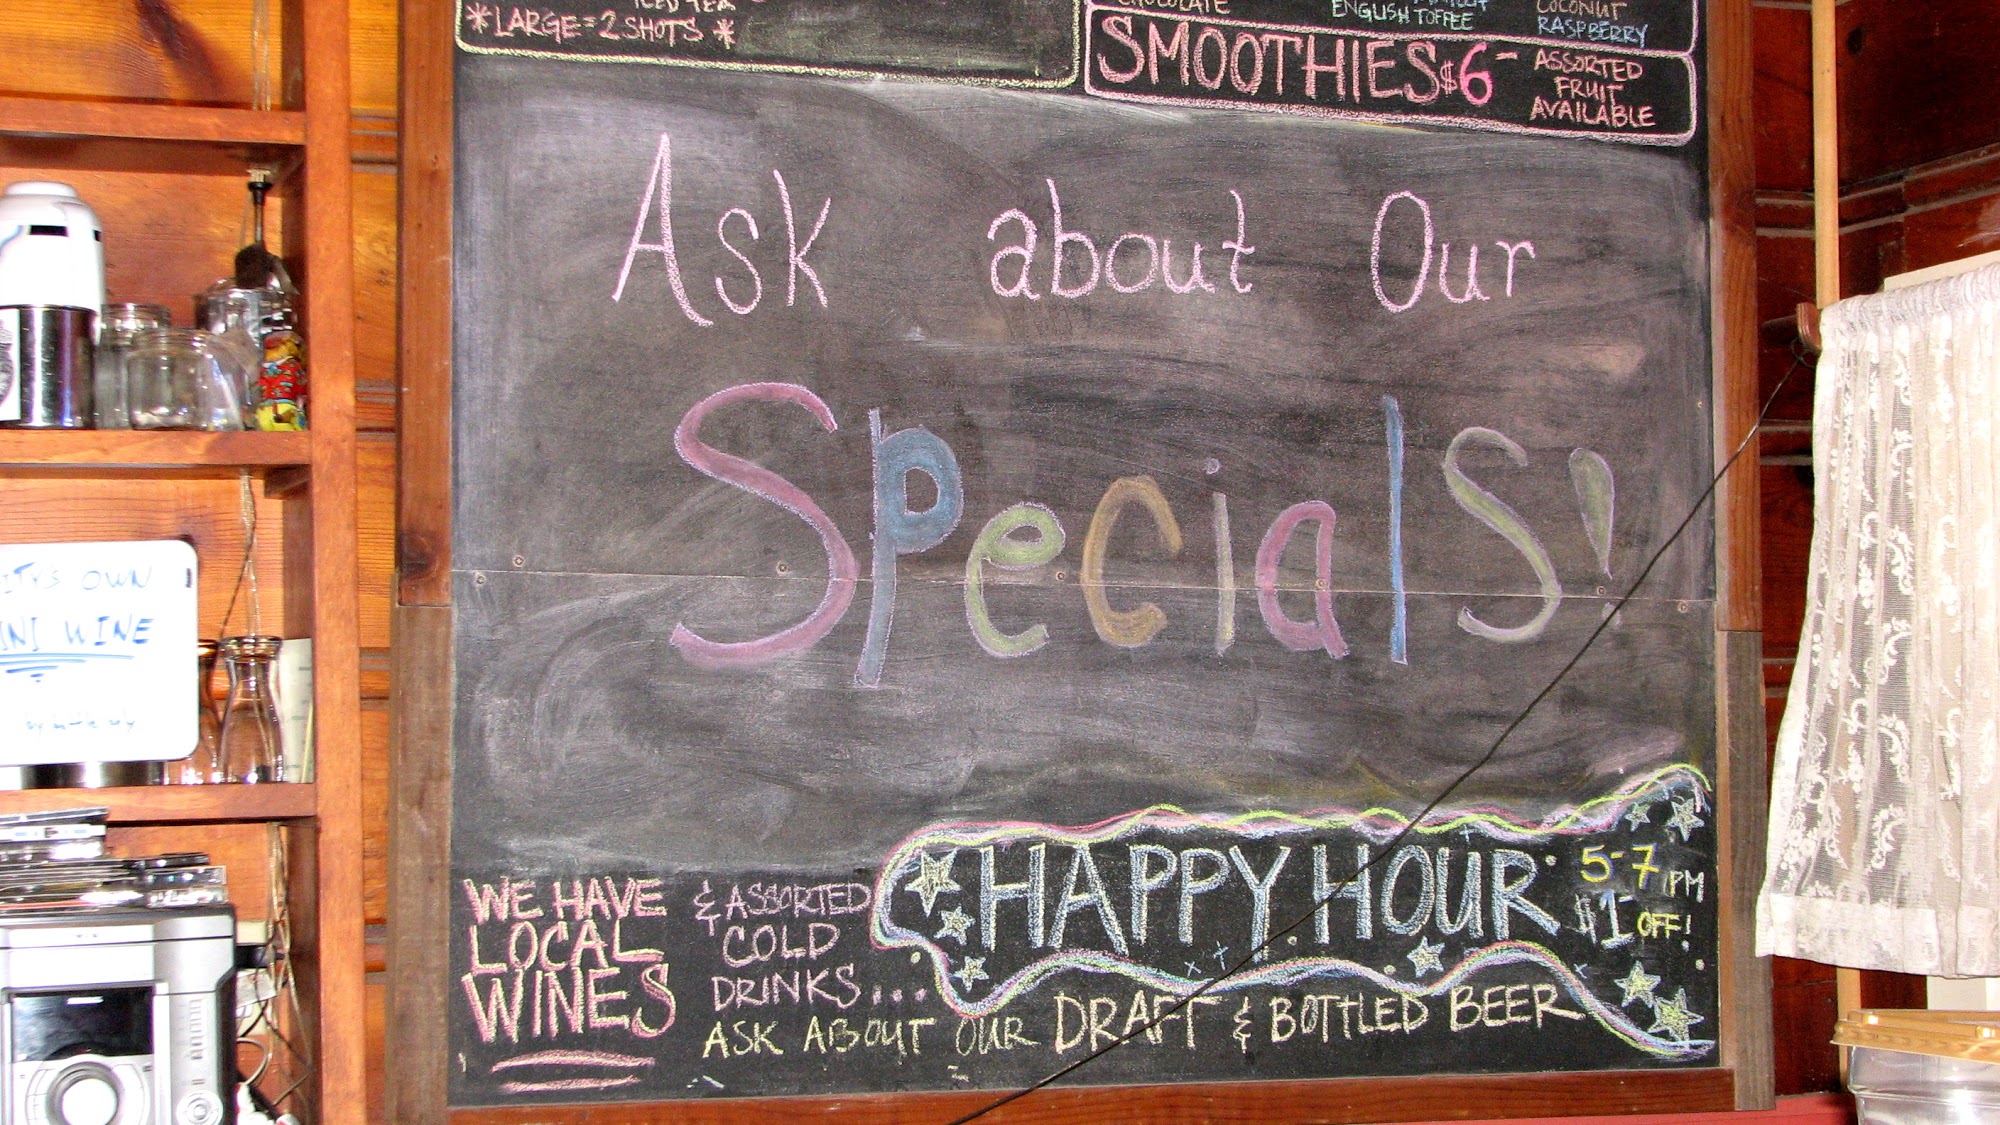 ICED TEA
*LARGE=2 SHOTS*
CHOCOLATE
ENGLISH TOFFEE
COCONUT
RASPBERRY
SMOOTHIES $6-
ASSORTED
FRUIT
AVAILABLE
Ask about Our
Specials!
WE HAVE
LOCAL
WINES
& ASSORTED
COLD
DRINKS...
ASK ABOUT OUR DRAFT & BOTTLED BEER
HAPPY HOUR
5-7 PM
$1 OFF!
OWN
WINE